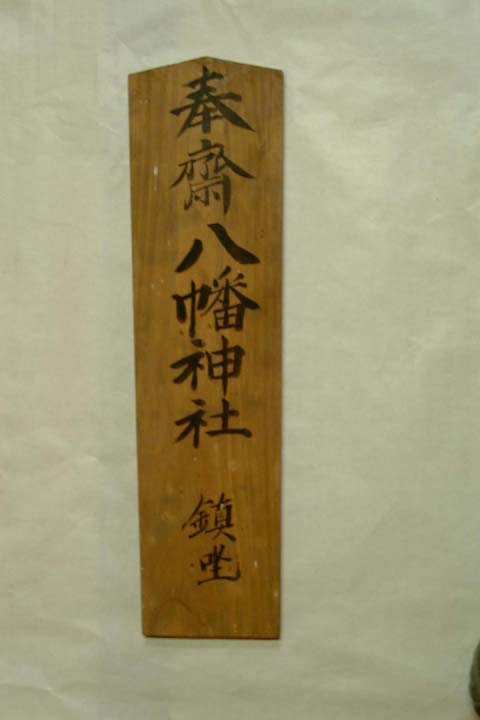 奉齋八幡神社 鎮坐